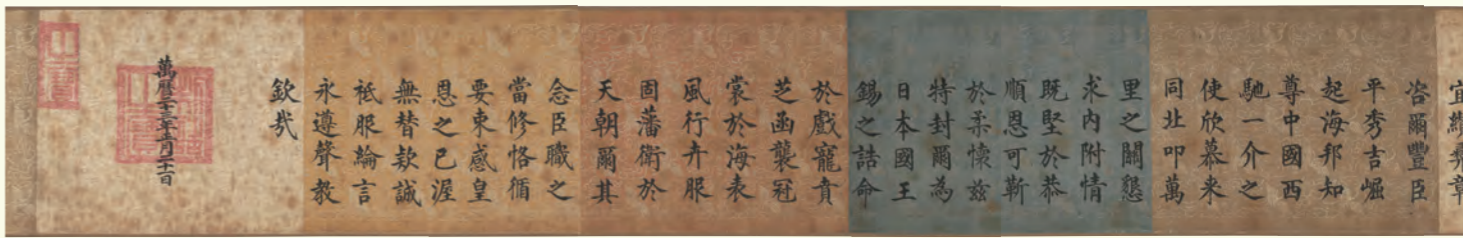 宜纘彝章
咨爾豐臣
平秀吉崛
起海邦知
尊中國西
馳一介之
使欣慕来
同北叩萬
里之關懇
求內附情
既堅於恭
順恩可靳
於柔懷兹
特封爾為
日本國王
錫之誥命
於戲寵賁
芝函襲冠
裳於海表
風行卉服
固藩衛於
天朝爾其
念臣職之
當修恪循
要束感皇
恩之已渥
無替欵誠
祗服綸言
永遵聲教
欽哉
萬曆二十三年正月二十一日